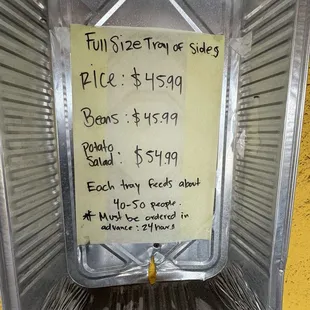 Full Size Tray of Sides
Rice : $45.99
Beans : $45.99
Potato
Salad : $54.99
Each tray feeds about
40-50 people.
* Must be ordered in
advance : 24 hours